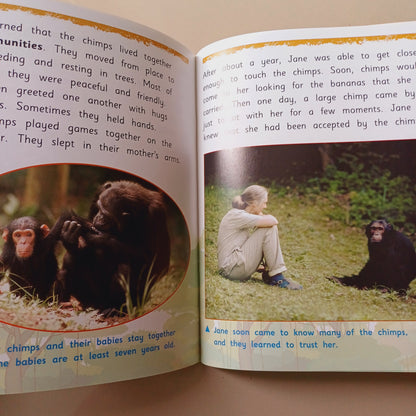 rned that the chimps lived together
munities. They moved from place to
eding and resting in trees. Most of
they were peaceful and friendly.
en greeted one another with hugs
s. Sometimes they held hands.
mps played games together on the
r. They slept in their mother's arms.
chimps and their babies stay together
he babies are at least seven years old.
After about a year, Jane was able to get close
enough to touch the chimps. Soon, chimps would
come to her looking for the bananas that she
carried. Then one day, a large chimp came by
just to sit with her for a few moments. Jane
knew that she had been accepted by the chim
▲ Jane soon came to know many of the chimps,
and they learned to trust her.